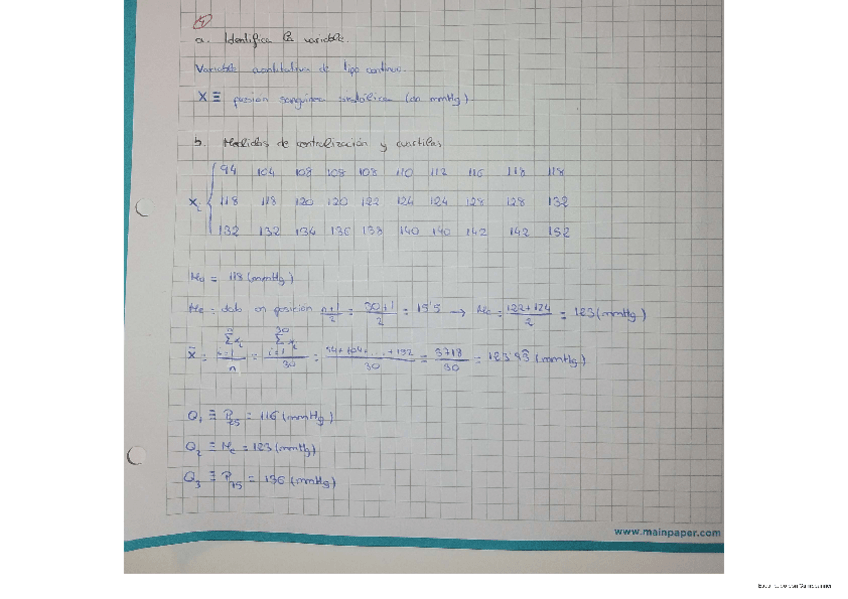 4
a. Identifica la variable.
Variable cuantitativa de tipo continuo.
X ≡ presión sanguínea sistólica (en mmHg)
b. Medidas de centralización y cuartiles
94 104 108 108 108 110 112 116 118 118
Xᵢ { 118 118 120 120 122 124 124 128 128 132
132 132 134 136 138 140 140 142 142 152
Mo = 118 (mmHg)
Me = dato en posición n+1/2 = 30+1/2 = 15'5 → Me = 122+124/2 = 123 (mmHg)
x̄ = Σxᵢ/n = Σxᵢ/30 = 94+104+...+152/30 = 3718/30 = 123'93 (mmHg)
Q₁ ≡ P₂₅ = 116 (mmHg)
Q₂ ≡ Me = 123 (mmHg)
Q₃ ≡ P₇₅ = 136 (mmHg)
www.mainpaper.com